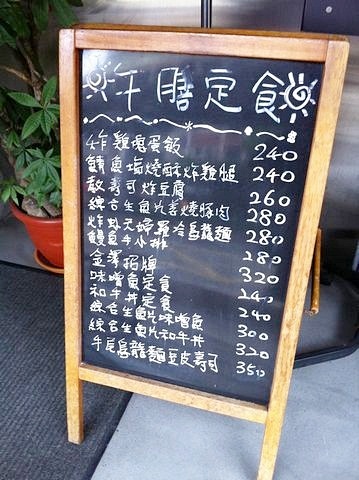 午膳定食
炸雞塊蛋飯 240
鯖魚塩燒酥炸雞腿 240
散壽司炸豆腐 260
綜合生魚片薑燒豚肉 280
炸蝦天婦羅冷烏龍麵 280
鰻魚牛小排 280
金澤招牌 320
味噌魚定食 240
和牛丼定食 240
綜合生魚片味噌魚 300
綜合生魚片和牛丼 320
牛尾烏龍麵豆皮壽司 350